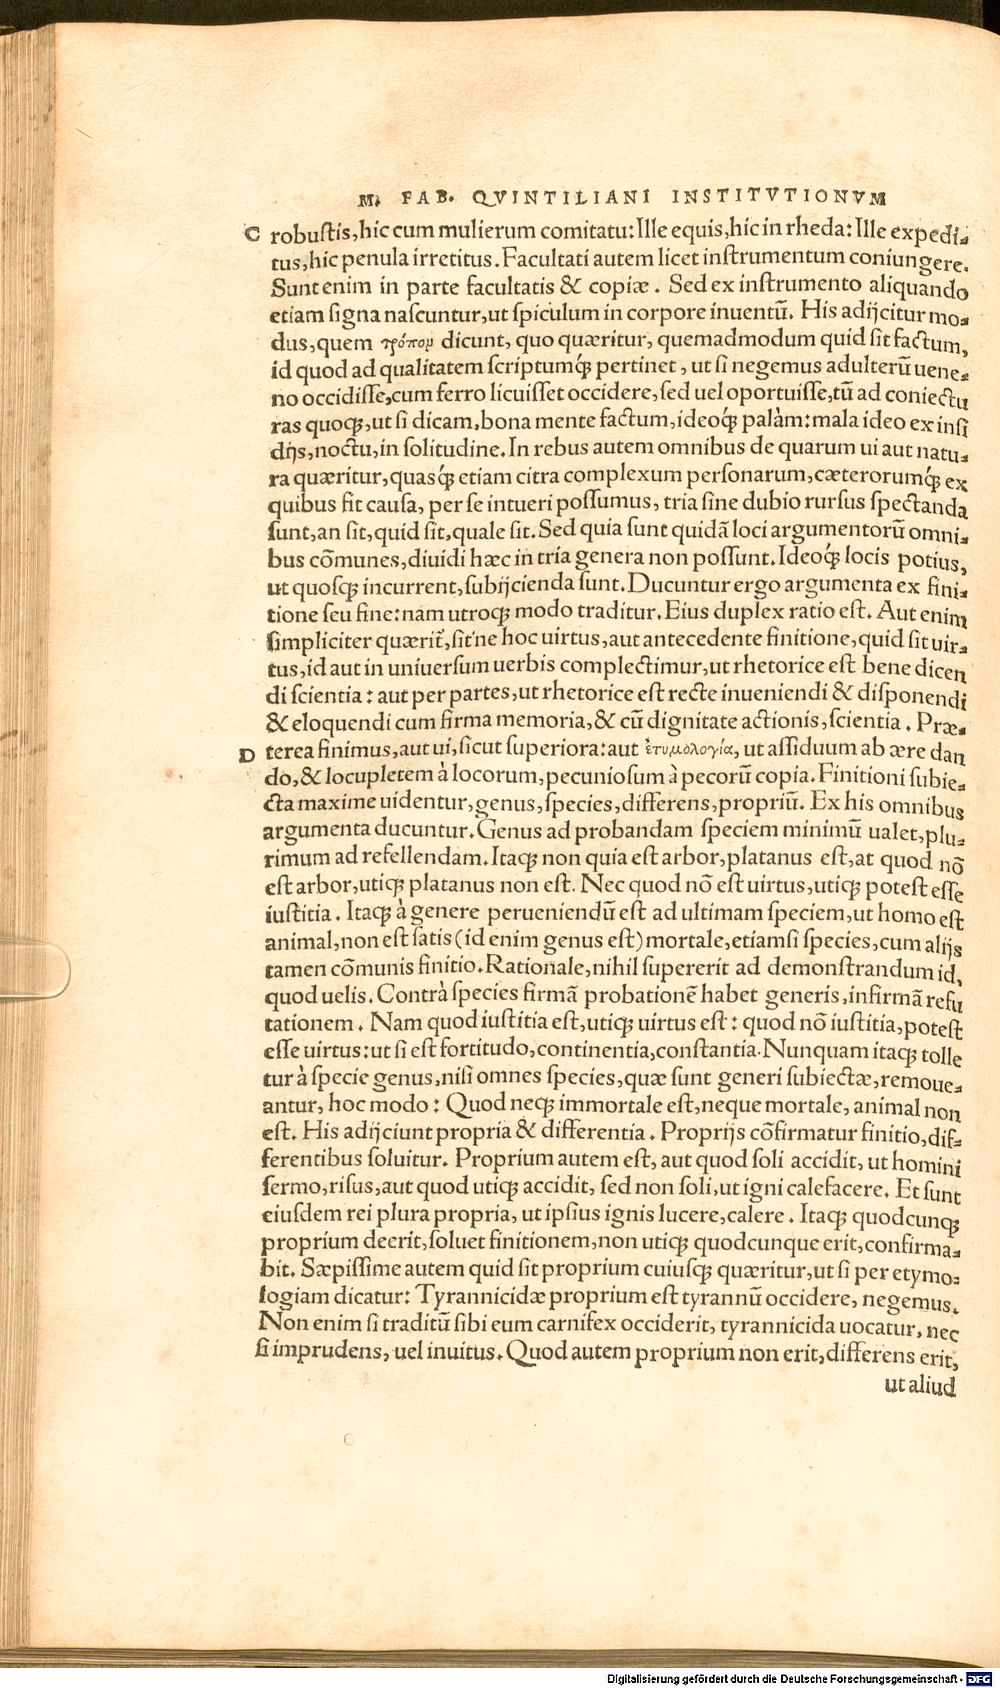 M. FAB. QVINTILIANI INSTITVTIONVM
C robustis, hic cum mulierum comitatu: Ille equis, hic in rheda: Ille expedi-
tus, hic penula irretitus. Facultati autem licet instrumentum coniungere.
Sunt enim in parte facultatis & copiæ. Sed ex instrumento aliquando
etiam signa nascuntur, ut spiculum in corpore inuentū. His adijcitur mo-
dus, quem τρόπομ dicunt, quo quæritur, quemadmodum quid sit factum,
id quod ad qualitatem scriptumq́; pertinet, ut si negemus adulterū uene-
no occidisse, cum ferro licuisset occidere, sed uel oportuisse, tū ad coniectu
ras quoq;, ut si dicam, bona mente factum, ideoq́; palàm: mala ideo ex insi
dijs, noctu, in solitudine. In rebus autem omnibus de quarum ui aut natu-
ra quæritur, quasq́; etiam citra complexum personarum, cæterorumq́; ex
quibus fit causa, per se intueri possumus, tria sine dubio rursus spectanda
sunt, an sit, quid sit, quale sit. Sed quia sunt quidā loci argumentorū omni-
bus cōmunes, diuidi hæc in tria genera non possunt. Ideoq́; locis potius,
ut quosq; incurrent, subijcienda sunt. Ducuntur ergo argumenta ex fini-
tione seu fine: nam utroq; modo traditur. Eius duplex ratio est. Aut enim
simpliciter quærit̃, sit'ne hoc uirtus, aut antecedente finitione, quid sit uir-
tus, id aut in uniuersum uerbis complectimur, ut rhetorice est bene dicen
di scientia: aut per partes, ut rhetorice est recte inueniendi & disponendi
& eloquendi cum firma memoria, & cū dignitate actionis, scientia. Præ-
D terea finimus, aut ui, sicut superiora: aut ἐτυμολογία, ut assiduum ab ære dan
do, & locupletem à locorum, pecuniosum à pecorū copia. Finitioni subie-
cta maxime uidentur, genus, species, differens, propriū. Ex his omnibus
argumenta ducuntur. Genus ad probandam speciem minimū ualet, plu-
rimum ad refellendam. Itaq; non quia est arbor, platanus est, at quod nō
est arbor, utiq; platanus non est. Nec quod nō est uirtus, utiq; potest esse
iustitia. Itaq; à genere perueniendū est ad ultimam speciem, ut homo est
animal, non est satis (id enim genus est) mortale, etiamsi species, cum alijs
tamen cōmunis finitio. Rationale, nihil supererit ad demonstrandum id,
quod uelis. Contrà species firmā probationē habet generis, infirmā refu
tationem. Nam quod iustitia est, utiq; uirtus est: quod nō iustitia, potest
esse uirtus: ut si est fortitudo, continentia, constantia. Nunquam itaq; tolle
tur à specie genus, nisi omnes species, quæ sunt generi subiectæ, remoue-
antur, hoc modo: Quod neq; immortale est, neque mortale, animal non
est. His adijciunt propria & differentia. Proprijs cōfirmatur finitio, dif-
ferentibus soluitur. Proprium autem est, aut quod soli accidit, ut homini
sermo, risus, aut quod utiq; accidit, sed non soli, ut igni calefacere. Et sunt
eiusdem rei plura propria, ut ipsius ignis lucere, calere. Itaq; quodcunq;
proprium deerit, soluet finitionem, non utiq; quodcunque erit, confirma-
bit. Sæpissime autem quid sit proprium cuiusq; quæritur, ut si per etymo-
logiam dicatur: Tyrannicidæ proprium est tyrannū occidere, negemus.
Non enim si traditū sibi eum carnifex occiderit, tyrannicida uocatur, nec
si imprudens, uel inuitus. Quod autem proprium non erit, differens erit,
ut aliud
Digitalisierung gefördert durch die Deutsche Forschungsgemeinschaft - DFG